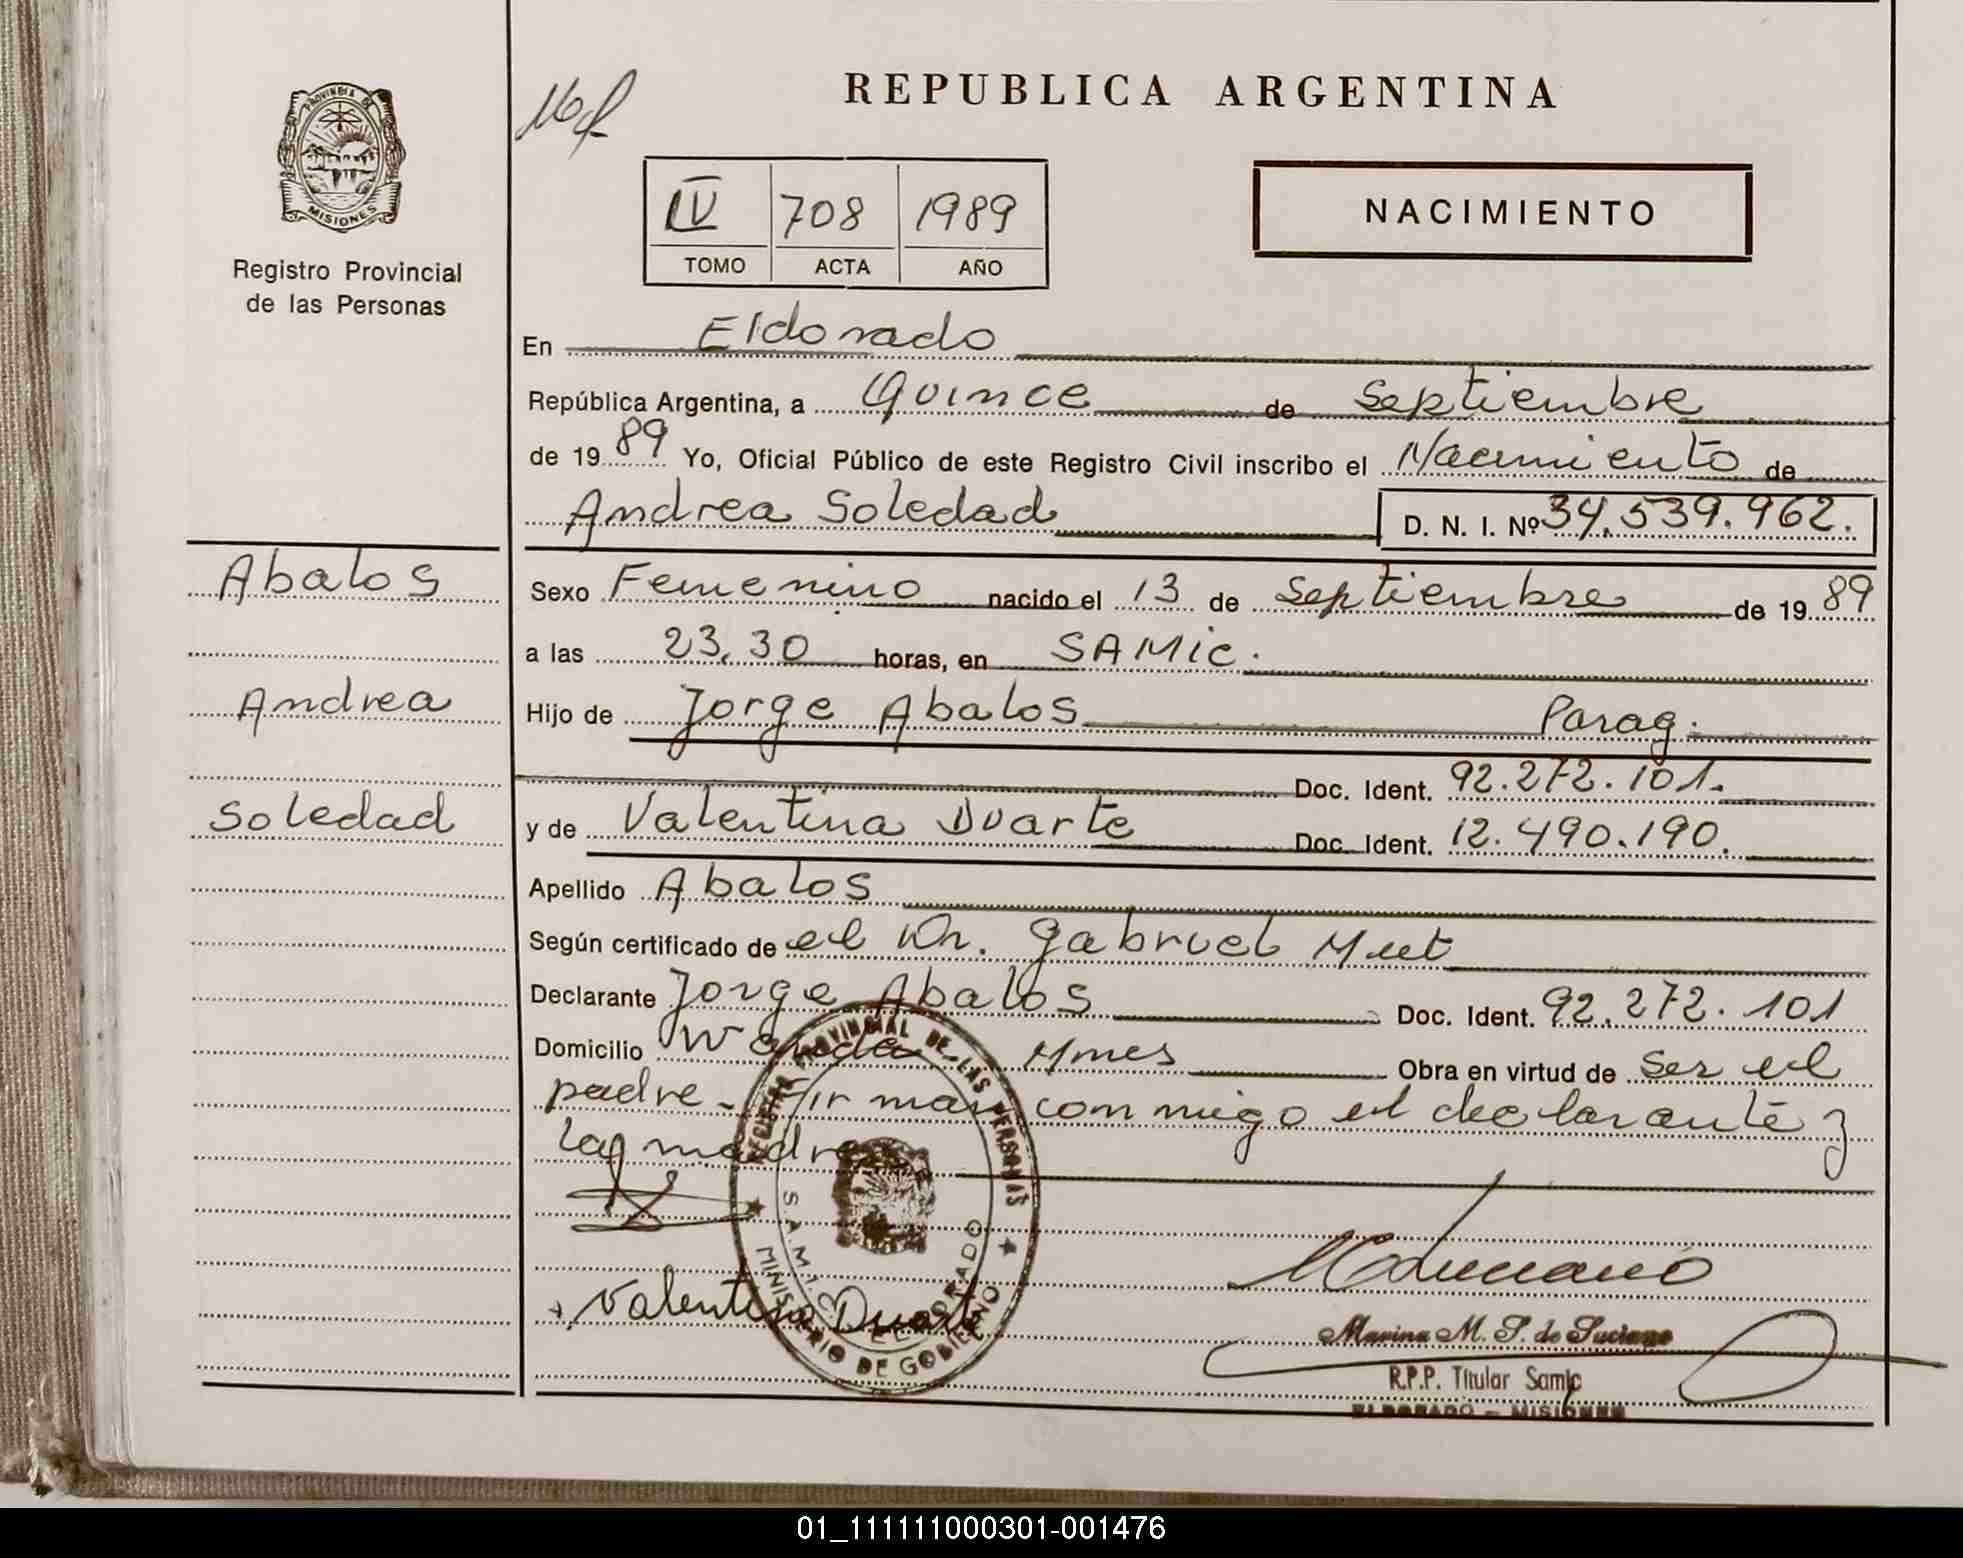 REPUBLICA ARGENTINA
PROVINCIA DE
MISIONES
Registro Provincial
de las Personas
IV 708 1989
TOMO ACTA AÑO
NACIMIENTO
En Eldorado
República Argentina, a Quince de Septiembre
de 1989 Yo, Oficial Público de este Registro Civil inscribo el Nacimiento de
Andrea Soledad D. N. I. Nº 34.539.962.
Abalos
Andrea
Soledad
Sexo Femenino nacido el 13 de Septiembre de 1989
a las 23,30 horas, en SAMIC.
Hijo de Jorge Abalos Parag.
Doc. Ident. 92.272.101.
y de Valentina Duarte Doc. Ident. 12.490.190.
Apellido Abalos
Según certificado de el Dr. Gabriel
Declarante Jorge Abalos Doc. Ident. 92.272.101
Domicilio Wanda Mnes Obra en virtud de ser el
padre - Firman conmigo el declarante y
la madre
REGISTRO PROVINCIAL DE LAS PERSONAS
S.A.M.I.C. ELDORADO
MINISTERIO DE GOBIERNO
Valentina Duarte
Marina M. S. de Luciano
R.P.P. Titular Samic
ELDORADO - MISIONES
01_111111000301-001476